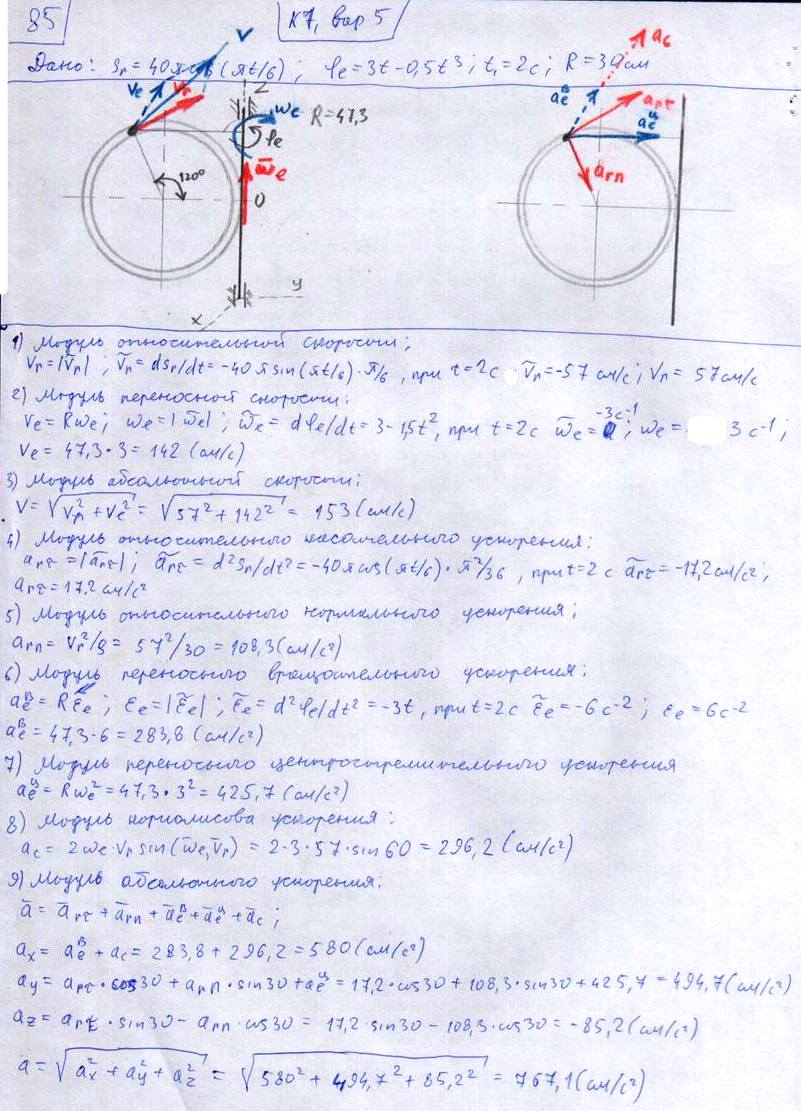 85
К7, вар 5
Дано: Sr = 40π cos(πt/6); φe = 3t - 0,5t³; t₁ = 2c; R = 30см
V
Ve
Vr
z
ωe
R = 47,3
φe
ω̄e
120°
O
y
x
ac
aeᵇ
arτ
aeᶣ
arn
1) Модуль относительной скорости;
Vr = |Ṽr|; Ṽr = dsr/dt = -40π sin(πt/6)·π/6, при t = 2c Ṽr = -57 см/с; Vr = 57 см/с
2) Модуль переносной скорости:
Ve = Rωe; ωe = |ω̃e|; ω̃e = dφe/dt = 3 - 1,5t², при t = 2c ω̃e = -3c⁻¹; ωe = 3 c⁻¹;
Ve = 47,3·3 = 142 (см/с)
3) Модуль абсолютной скорости;
V = √(Vr² + Ve²) = √(57² + 142²) = 153 (см/с)
4) Модуль относительного касательного ускорения:
arτ = |ãrτ|; ãrτ = d²sr/dt² = -40π cos(πt/6)·π²/36, при t = 2 c ãrτ = -17,2 см/с²;
arτ = 17,2 см/с²
5) Модуль относительного нормального ускорения;
arn = Vr²/R = 57²/30 = 108,3 (см/с²)
6) Модуль переносного вращательного ускорения:
aeᵇ = Rεe; εe = |ε̃e|; ε̃e = d²φe/dt² = -3t, при t = 2c ε̃e = -6 c⁻²; εe = 6c⁻²
aeᵇ = 47,3·6 = 283,8 (см/с²)
7) Модуль переносного центростремительного ускорения
aeᶣ = Rωe² = 47,3·3² = 425,7 (см/с²)
8) Модуль кориолисова ускорения:
ac = 2ωe·Vr sin(ω̄e, V̄r) = 2·3·57·sin 60 = 296,2 (см/с²)
9) Модуль абсолютного ускорения;
ā = ārτ + ārn + āeᵇ + āeᶣ + āc;
ax = aeᵇ + ac = 283,8 + 296,2 = 580 (см/с²)
ay = arτ·cos30 + arn·sin30 + aeᶣ = 17,2·cos30 + 108,3·sin30 + 425,7 = 494,7 (см/с²)
az = arτ·sin30 - arn·cos30 = 17,2·sin30 - 108,3·cos30 = -85,2 (см/с²)
a = √(ax² + ay² + az²) = √(580² + 494,7² + 85,2²) = 767,1 (см/с²)